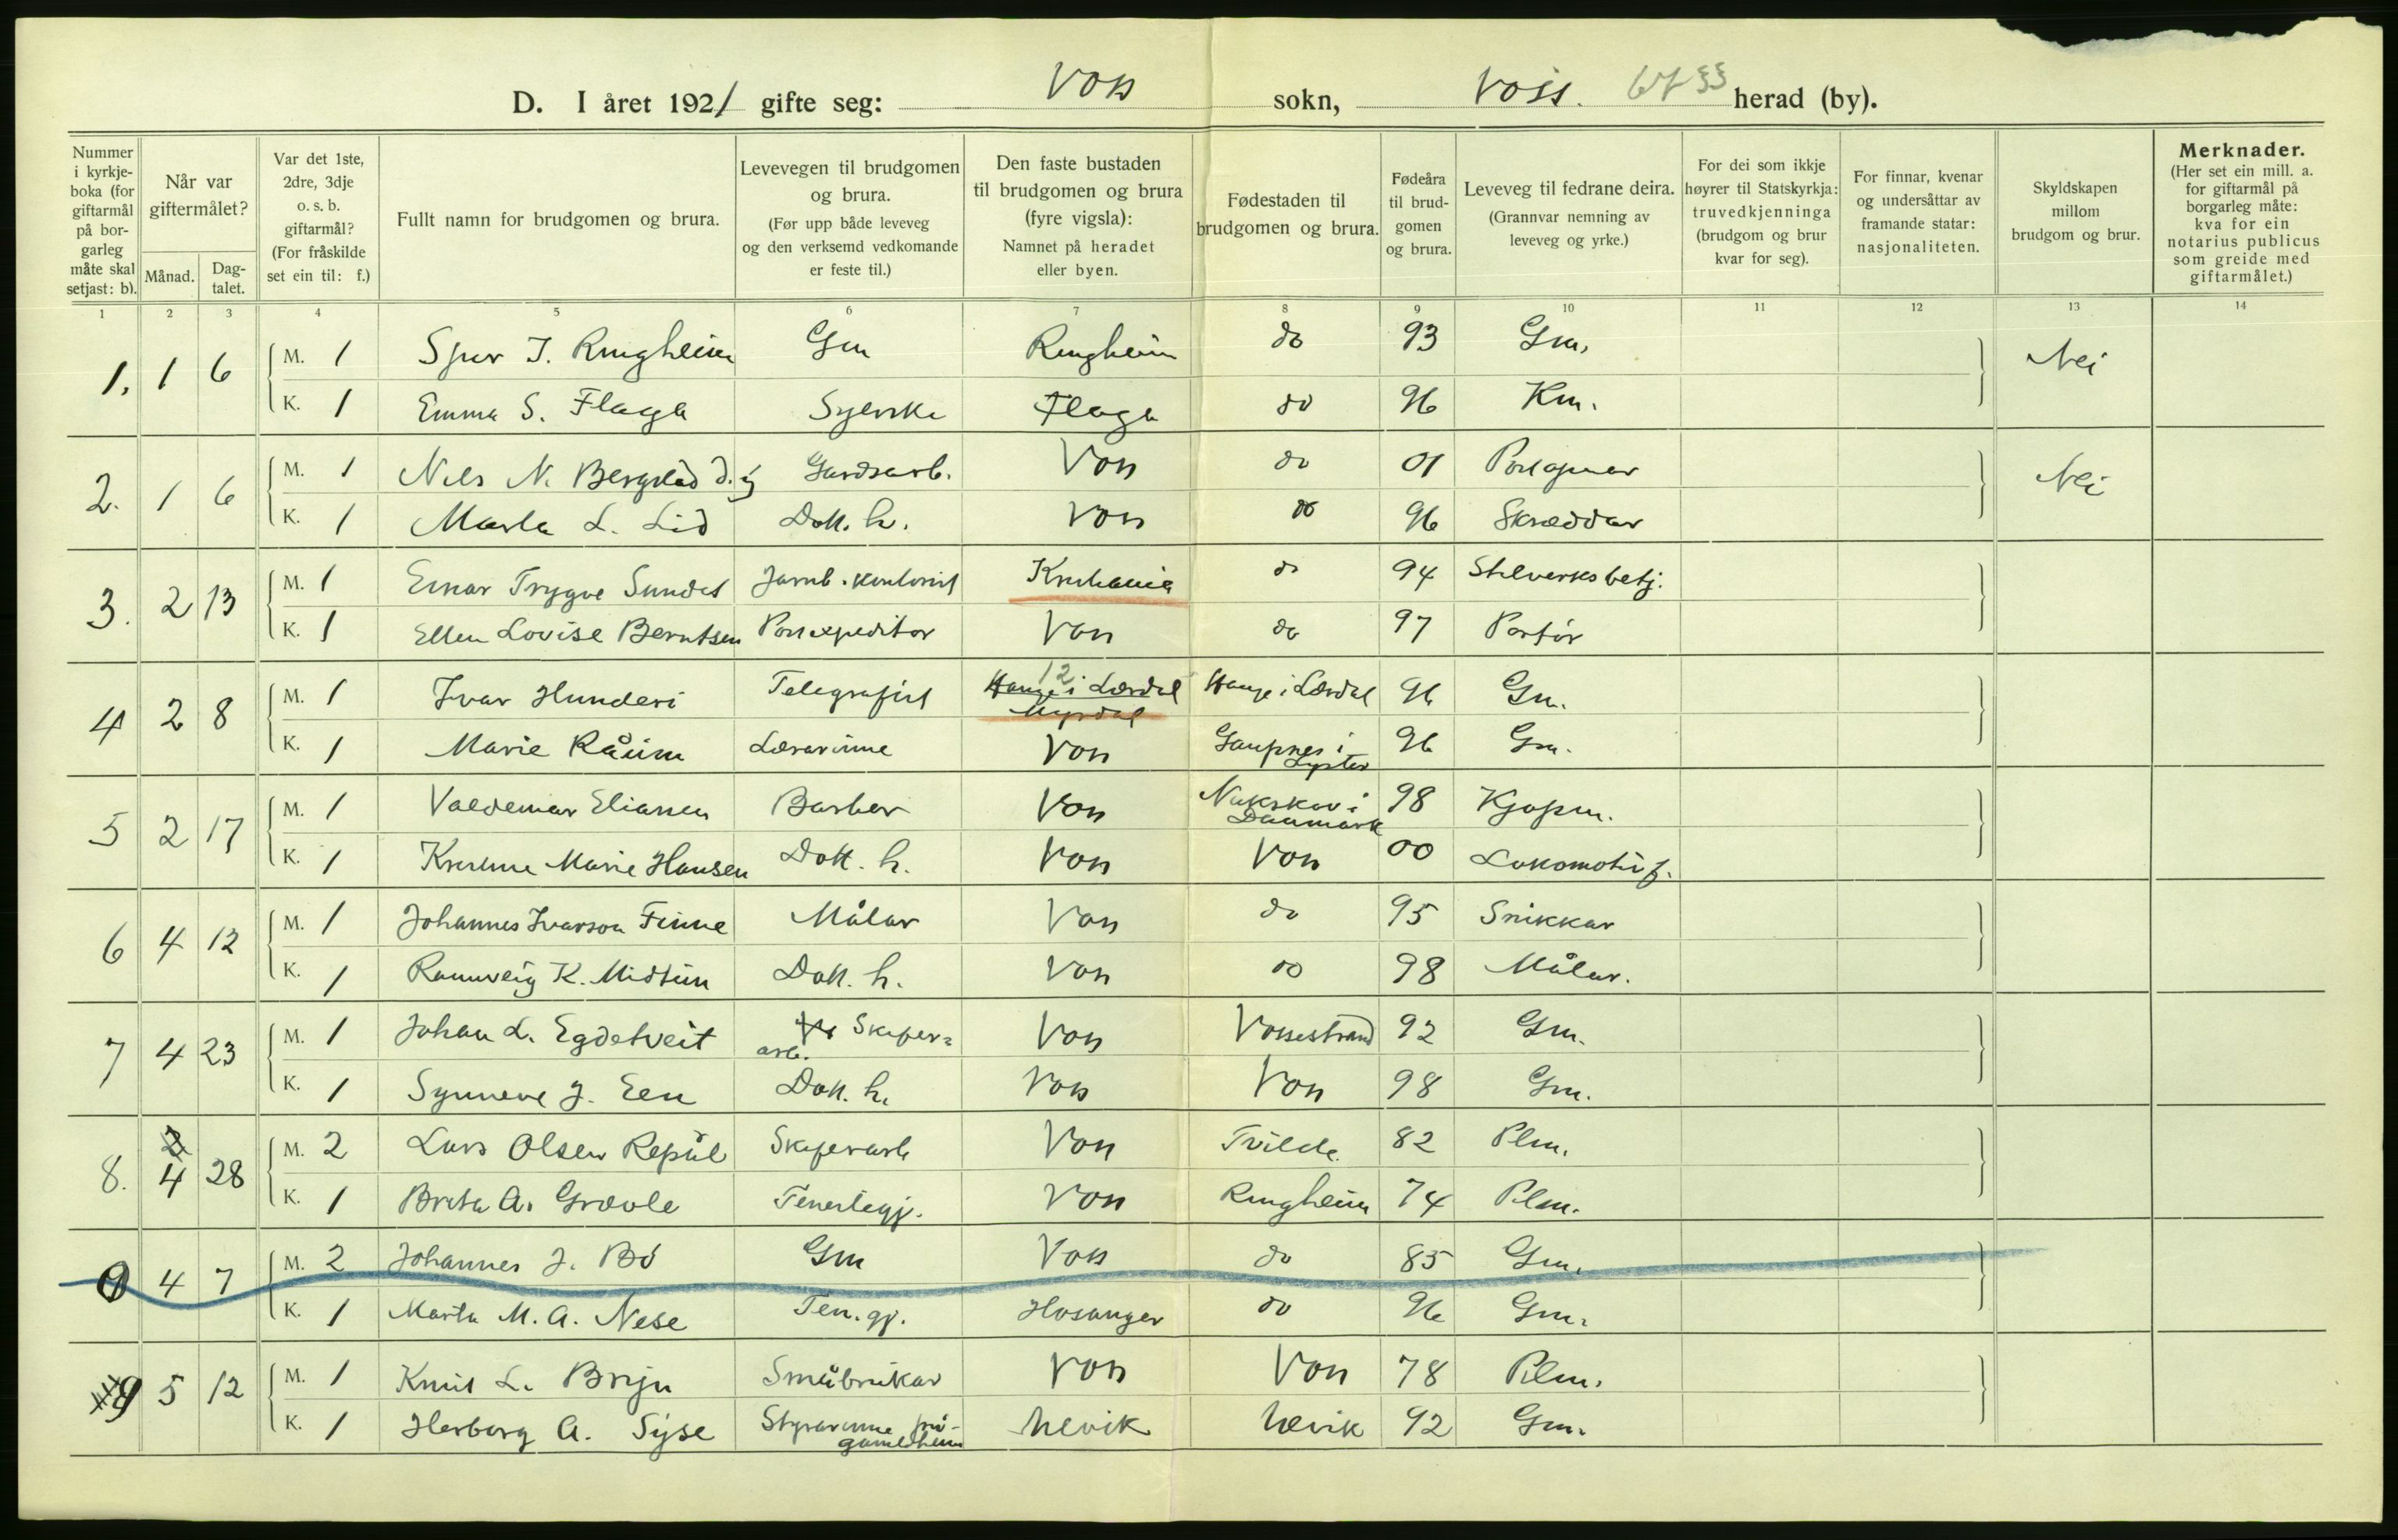 D. I året 1921 gifte seg: Voss sokn, Voss. herad (by).
Nummer i kyrkje-boka (for giftarmål på bor-garleg måte skal setjast: b).
Når var giftermålet?
Månad.
Dag-talet.
Var det 1ste, 2dre, 3dje o. s. b. giftarmål? (For fråskilde set ein til: f.)
Fullt namn for brudgomen og brura.
Levevegen til brudgomen og brura. (Før upp både leveveg og den verksemd vedkomande er feste til.)
Den faste bustaden til brudgomen og brura (fyre vigsla): Namnet på heradet eller byen.
Fødestaden til brudgomen og brura.
Fødeåra til brud-gomen og brura.
Leveveg til fedrane deira. (Grannvar nemning av leveveg og yrke.)
For dei som ikkje høyrer til Statskyrkja: truvedkjenninga (brudgom og brur kvar for seg).
For finnar, kvenar og undersåttar av framande statar: nasjonaliteten.
Skyldskapen millom brudgom og brur.
Merknader. (Her set ein mill. a. for giftarmål på borgarleg måte: kva for ein notarius publicus som greide med giftarmålet.)
1 2 3 4 5 6 7 8 9 10 11 12 13 14
1. 1 6 M. 1 Sjur J. Ringheim Gm Ringheim do 93 Gm. Nei
K. 1 Emma S. Flaga Syerske Flaga do 96 Km.
2. 1 6 M. 1 Nils N. Bergslid d.y. Gardsarb. Voss do 01 Nei
K. 1 Marta L. Lid Dott. h. Voss do 96 Skræddar
3. 2 13 M. 1 Einar Trygve Sundet Jarnb. kontorist Kristiania do 94 Stilverksbetj.
K. 1 Ellen Lovise Berntsen Postexpeditor Voss do 97 Portör
12
4 2 8 M. 1 Ivar Hunderi Telegrafist Hauge i Lærdal Myrdal Hauge i Lærdal 96 Gm.
K. 1 Marie Råum Lærarinne Voss Gaupnes i Lyster 96 Gm.
5 2 17 M. 1 Valdemar Eliassen Barber Voss Nakskov i Danmark 98 Kjøpm.
K. 1 Kristine Marie Hansen Dott. h. Voss Voss 00 Lokomotivf.
6 4 12 M. 1 Johannes Ivarson Finne Målar Voss do 95 Snikkar
K. 1 Rannveig K. Midtun Dott. h. Voss do 98 Målar.
7 4 23 M. 1 Johan L. Egdetveit Skifer=arb. Voss Vossestrand 92 Gm.
K. 1 Synneve J. Een Dott. h. Voss Voss 98 Gm.
8. 4 28 M. 2 Lars Olsen Repål Skiferarb Voss Tvilde 82 Plm.
K. 1 Brita A. Grovle Tenestegj. Voss Ringheim 74 Plm.
9 4 7 M. 2 Johannes J. Bö Gm Voss do 85 Gm.
K. 1 Marta M. A. Nese Ten. gj. Hosanger do 96 Gm.
9 5 12 M. 1 Knut L. Brijn Småbrukar Voss Voss 78 Plm.
K. 1 Herborg A. Syse Styrarinne på gamleheim Ulvik Ulvik 92 Gm.